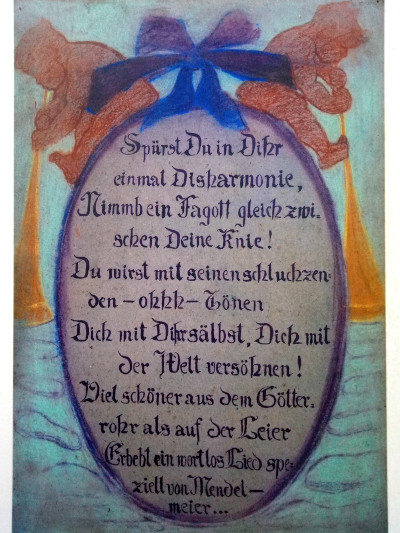 Spürst Du in Dihr
einmal Disharmonie,
Nimmb ein Fagott gleich zwi-
schen Deine Knie!
Du wirst mit seinen schluchzen-
den – ohhh – Tönen
Dich mit Dihrsälbst, Dich mit
der Welt versöhnen!
Viel schöner aus dem Götter-
rohr als auf der Leier
Erbebt ein wortlos Lied spe-
ziell von Mendel–
meier...